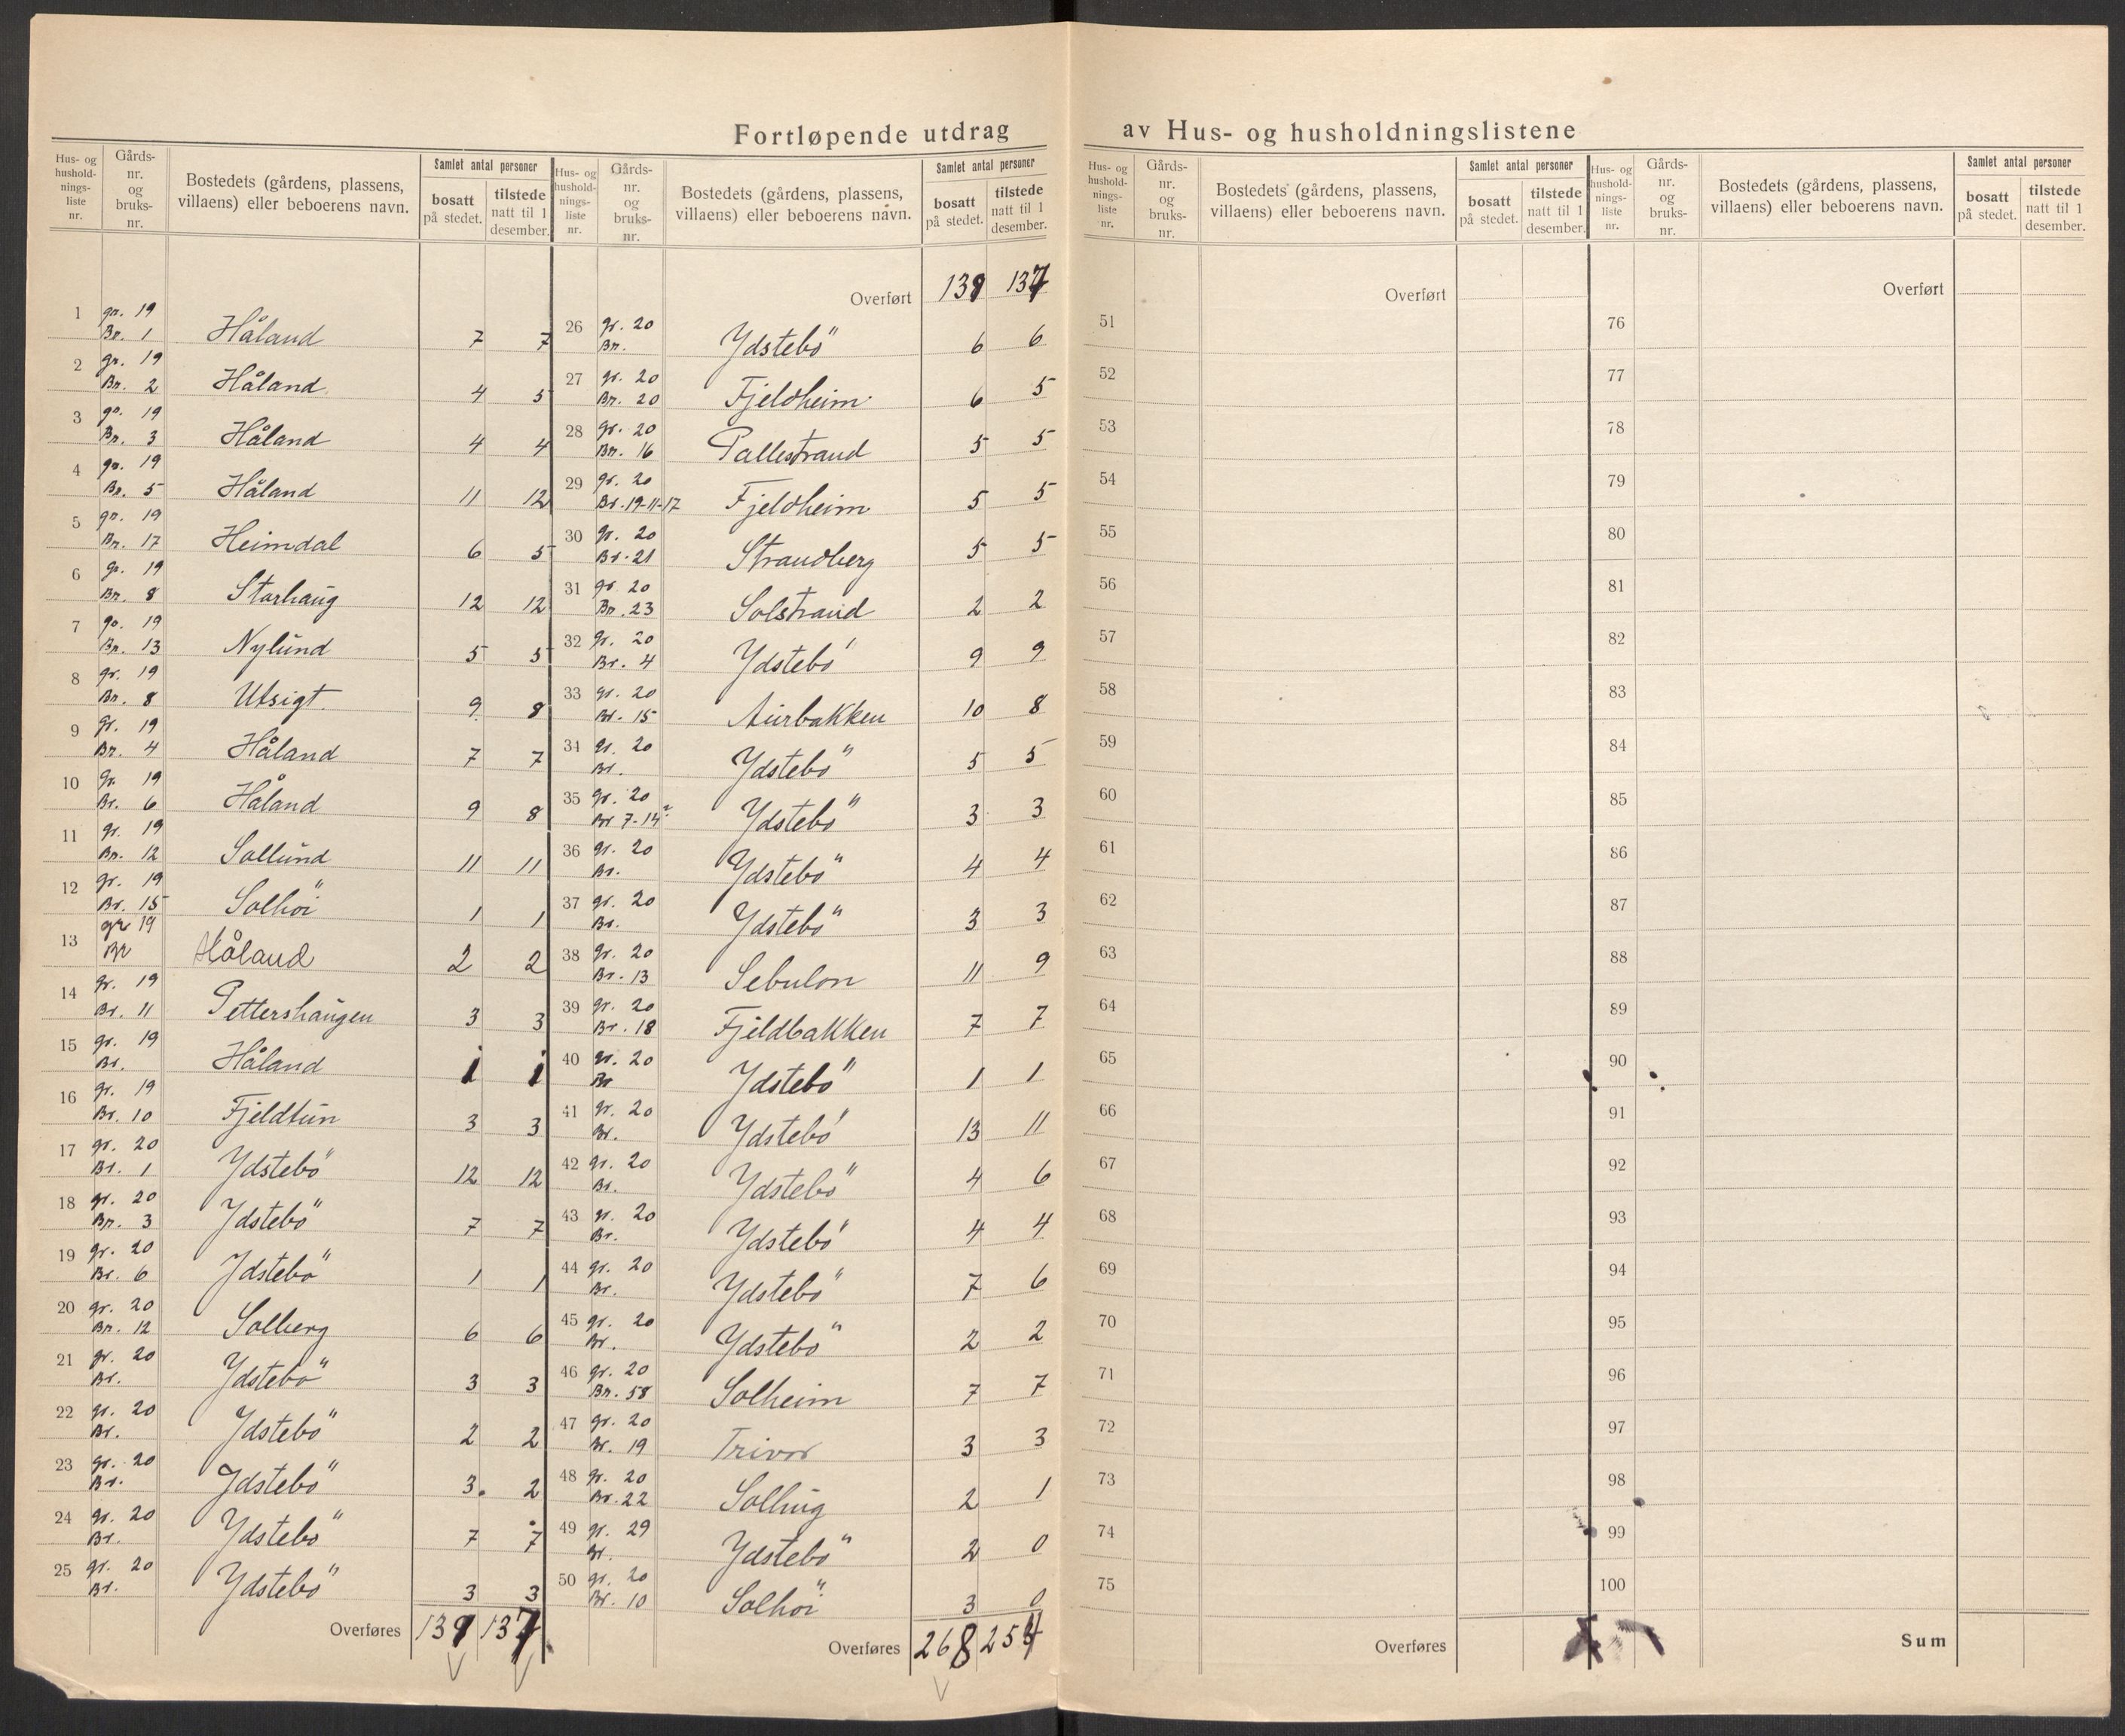 Fortløpende utdrag av Hus- og husholdningslistene
Hus- og hushold-nings-liste nr. Gårds-nr. og bruks-nr. Bostedets (gårdens, plassens, villaens) eller beboerens navn. Samlet antal personer bosatt på stedet. tilstede natt til 1 desember.
1 gr. 19 Br. 1 Håland 7 7
2 gr. 19 Br. 2 Håland 4 5
3 gr. 19 Br. 3 Håland 4 4
4 gr. 19 Br. 5 Håland 11 12
5 gr. 19 Br. 17 Heimdal 6 5
6 gr. 19 Br. 8 Storhaug 12 12
7 gr. 19 Br. 13 Nylund 5 5
8 gr. 19 Br. 8 Utsigt 9 8
9 gr. 19 Br. 4 Håland 7 7
10 gr. 19 Br. 6 Håland 9 8
11 gr. 19 Br. 12 Sollund 11 11
12 gr. 19 Br. 15 Solhöi 1 1
13 gr 19 Br Håland 2 2
14 gr. 19 Br. 11 Pettershaugen 3 3
15 gr. 19 Br. Håland 1 1
16 gr. 19 Br. 10 Fjeldtun 3 3
17 gr. 20 Br. 1 Ydstebö 12 12
18 gr. 20 Br. 3 Ydstebö 7 7
19 gr. 20 Br. 6 Ydstebö 1 1
20 gr. 20 Br. 12 Solberg 6 6
21 gr. 20 Br. Ydstebö 3 3
22 gr. 20 Br. Ydstebö 2 2
23 gr. 20 Br. Ydstebö 3. 2
24 gr. 20 Br. Ydstebö 7 7
25 gr. 20 Br. Ydstebö 3 3
Overføres 139 137
Hus- og hushold-nings-liste nr. Gårds-nr. og bruks-nr. Bostedets (gårdens, plassens, villaens) eller beboerens navn. Samlet antal personer bosatt på stedet. tilstede natt til 1 desember.
Overført 139 137
26 gr. 20 Br. Ydstebö 6 6
27 gr. 20 Br. 20 Fjeldheim 6 5
28 gr. 20 Br. 16 Pallestrand 5 5
29 gr. 20 Br. 19-11-17 Fjeldheim 5 5
30 gr. 20 Br. 21 Strandberg 5 5
31 gr. 20 Br. 23 Solstrand 2 2
32 gr. 20 Br. 4 Ydstebö 9 9
33 gr. 20 Br. 15 Aurbakken 10 8
34 gr. 20 Br. Ydstebö 5 5
35 gr. 20 Br 7-14 Ydstebö 3 3
36 gr. 20 Br. Ydstebö 4 4
37 gr. 20 Br. Ydstebö 3 3
38 gr. 20 Br. 13 Sebulon 11 9
39 gr. 20 Br. 18 Fjeldbakken 7 7
40 gr. 20 Br Ydstebö 1 1
41 gr. 20 Br. Ydstebö 13 11
42 gr. 20 Br. Ydstebö 4 6
43 gr. 20 Br. Ydstebö 4 4
44 gr. 20 Br. Ydstebö 7 6
45 gr. 20 Br. Ydstebö 2 2
46 gr. 20 Br. 58 Solheim 7 7
47 gr. 20 Br. 19 Trivor 3 3
48 gr. 20 Br. 22 2 1
49 gr. 29 Br. Ydstebö 2 0
50 gr. 20 Br. 10 Solhöi 3 0
Overføres 268 254
Hus- og hushold-nings-liste nr. Gårds-nr. og bruks-nr. Bostedets (gårdens, plassens, villaens) eller beboerens navn. Samlet antal personer bosatt på stedet. tilstede natt til 1 desember.
Overført
51
52
53
54
55
56
57
58
59
60
61
62
63
64
65
66
67
68
69
70
71
72
73
74
75
Overføres
Hus- og hushold-nings-liste nr. Gårds-nr. og bruks-nr. Bostedets (gårdens, plassens, villaens) eller beboerens navn. Samlet antal personer bosatt på stedet. tilstede natt til 1 desember.
Overført
76
77
78
79
80
81
82
83
84
85
86
87
88
89
90
91
92
93
94
95
96
97
98
99
100
Sum